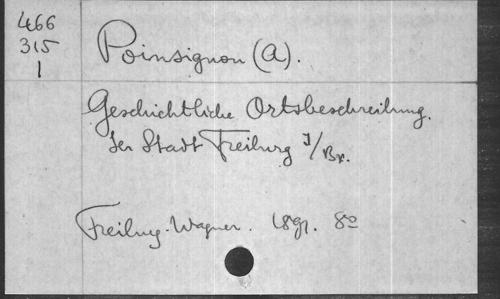 466
315
1
Poinsignon (A).
Geschichtliche Ortsbeschreibung.
der Stadt Freiburg I/Br.
Freiburg. Wagner. 1891. 8º